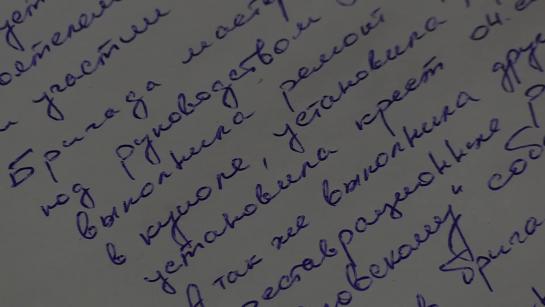 и участии
Бригада
под руководством
выполнила ремонт
в куполе, установила
установила крест 04.
А так же выполнила
реставрационные
собо
брига